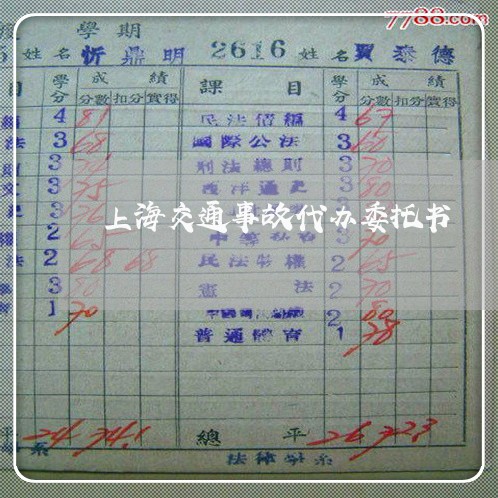 7788.com
學期
姓名 忻鼎明 2616 姓名 賈泰德
目 學分 成績 課目 學分 成績
分數 扣分 實得 分數 扣分 實得
4 81 民法債編 4 67
法 3 68 國際公法 3 60
則 3 刑法總則 3 70
3 75 西洋通史 3 80
上海交通事故代办委托书
史 3 76 3
權 2 65 2 70
法 2 68 68 民法物權 2 65
3 80 憲法 2 70
育 1 70 2 80
普通體育 1 78
平 24 74.1 總平 26 72.3
系 法律學系